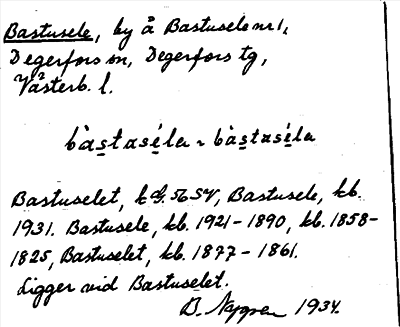 Bastusele, by å Bastusele nr 1,
Degerfors sn, Degerfors tg,
Västerb. l.
bàs̲tasé̲la ~ bàs̲tasé̲la
Bastuselet, kbl. 56 SV, Bastusele, kb.
1931. Bastusele, kb. 1921-1890, kb. 1858-
1825, Bastuselet, kb. 1877-1861.
Ligger vid Bastuselet.
B. 1934.